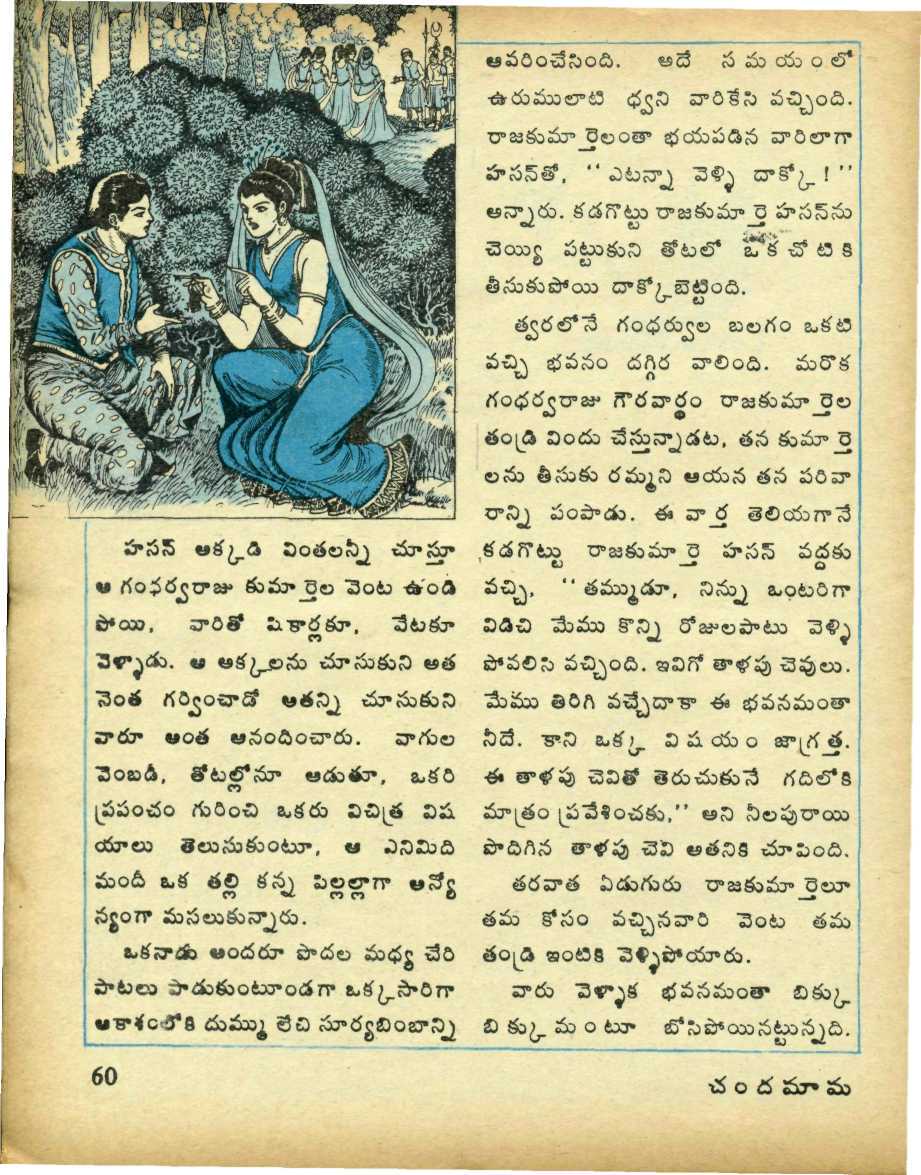 హసన్ అక్కడి వింతలన్నీ చూస్తూ
ఆ గంధర్వరాజు కుమార్తెల వెంట ఉండి
పోయి, వారితో షికార్లకూ, వేటకూ
వెళ్ళాడు. ఆ అక్కలను చూసుకుని అత
నెంత గర్వించాడో అతన్ని చూసుకుని
వారూ అంత ఆనందించారు. వాగుల
వెంబడీ, తోటల్లోనూ ఆడుతూ, ఒకరి
ప్రపంచం గురించి ఒకరు విచిత్ర విష
యాలు తెలుసుకుంటూ, ఆ ఎనిమిది
మందీ ఒక తల్లి కన్న పిల్లల్లాగా అన్యో
న్యంగా మసలుకున్నారు.
ఒకనాడు అందరూ పొదల మధ్య చేరి
పాటలు పాడుకుంటూండగా ఒక్కసారిగా
ఆకాశంలోకి దుమ్ము లేచి సూర్యబింబాన్ని
ఆవరించేసింది. అదే సమయంలో
ఉరుములాటి ధ్వని వారికేసి వచ్చింది.
రాజకుమార్తెలంతా భయపడిన వారిలాగా
హసన్‌తో, ‘‘ ఎటన్నా వెళ్ళి దాక్కో ! ’’
అన్నారు. కడగొట్టు రాజకుమార్తె హసన్‌ను
చెయ్యి పట్టుకుని తోటలో ఒక చోటికి
తీసుకుపోయి దాక్కోబెట్టింది.
త్వరలోనే గంధర్వుల బలగం ఒకటి
వచ్చి భవనం దగ్గిర వాలింది. మరొక
గంధర్వరాజు గౌరవార్థం రాజకుమార్తెల
తండ్రి విందు చేస్తున్నాడట, తన కుమార్తె
లను తీసుకు రమ్మని ఆయన తన పరివా
రాన్ని పంపాడు. ఈ వార్త తెలియగానే
కడగొట్టు రాజకుమార్తె హసన్ వద్దకు
వచ్చి, ‘‘ తమ్ముడూ, నిన్ను ఒంటరిగా
విడిచి మేము కొన్ని రోజులపాటు వెళ్ళి
పోవలిసి వచ్చింది. ఇవిగో తాళపు చెవులు.
మేము తిరిగి వచ్చేదాకా ఈ భవనమంతా
నీదే. కాని ఒక్క విషయం జాగ్రత్త.
ఈ తాళపు చెవితో తెరుచుకునే గదిలోకి
మాత్రం ప్రవేశించకు,’’ అని నీలపురాయి
పొదిగిన తాళపు చెవి అతనికి చూపింది.
తరవాత ఏడుగురు రాజకుమార్తెలూ
తమ కోసం వచ్చినవారి వెంట తమ
తండ్రి ఇంటికి వెళ్ళిపోయారు.
వారు వెళ్ళాక భవనమంతా బిక్కు
బిక్కుమంటూ బోసిపోయినట్టున్నది.
60
చందమామ